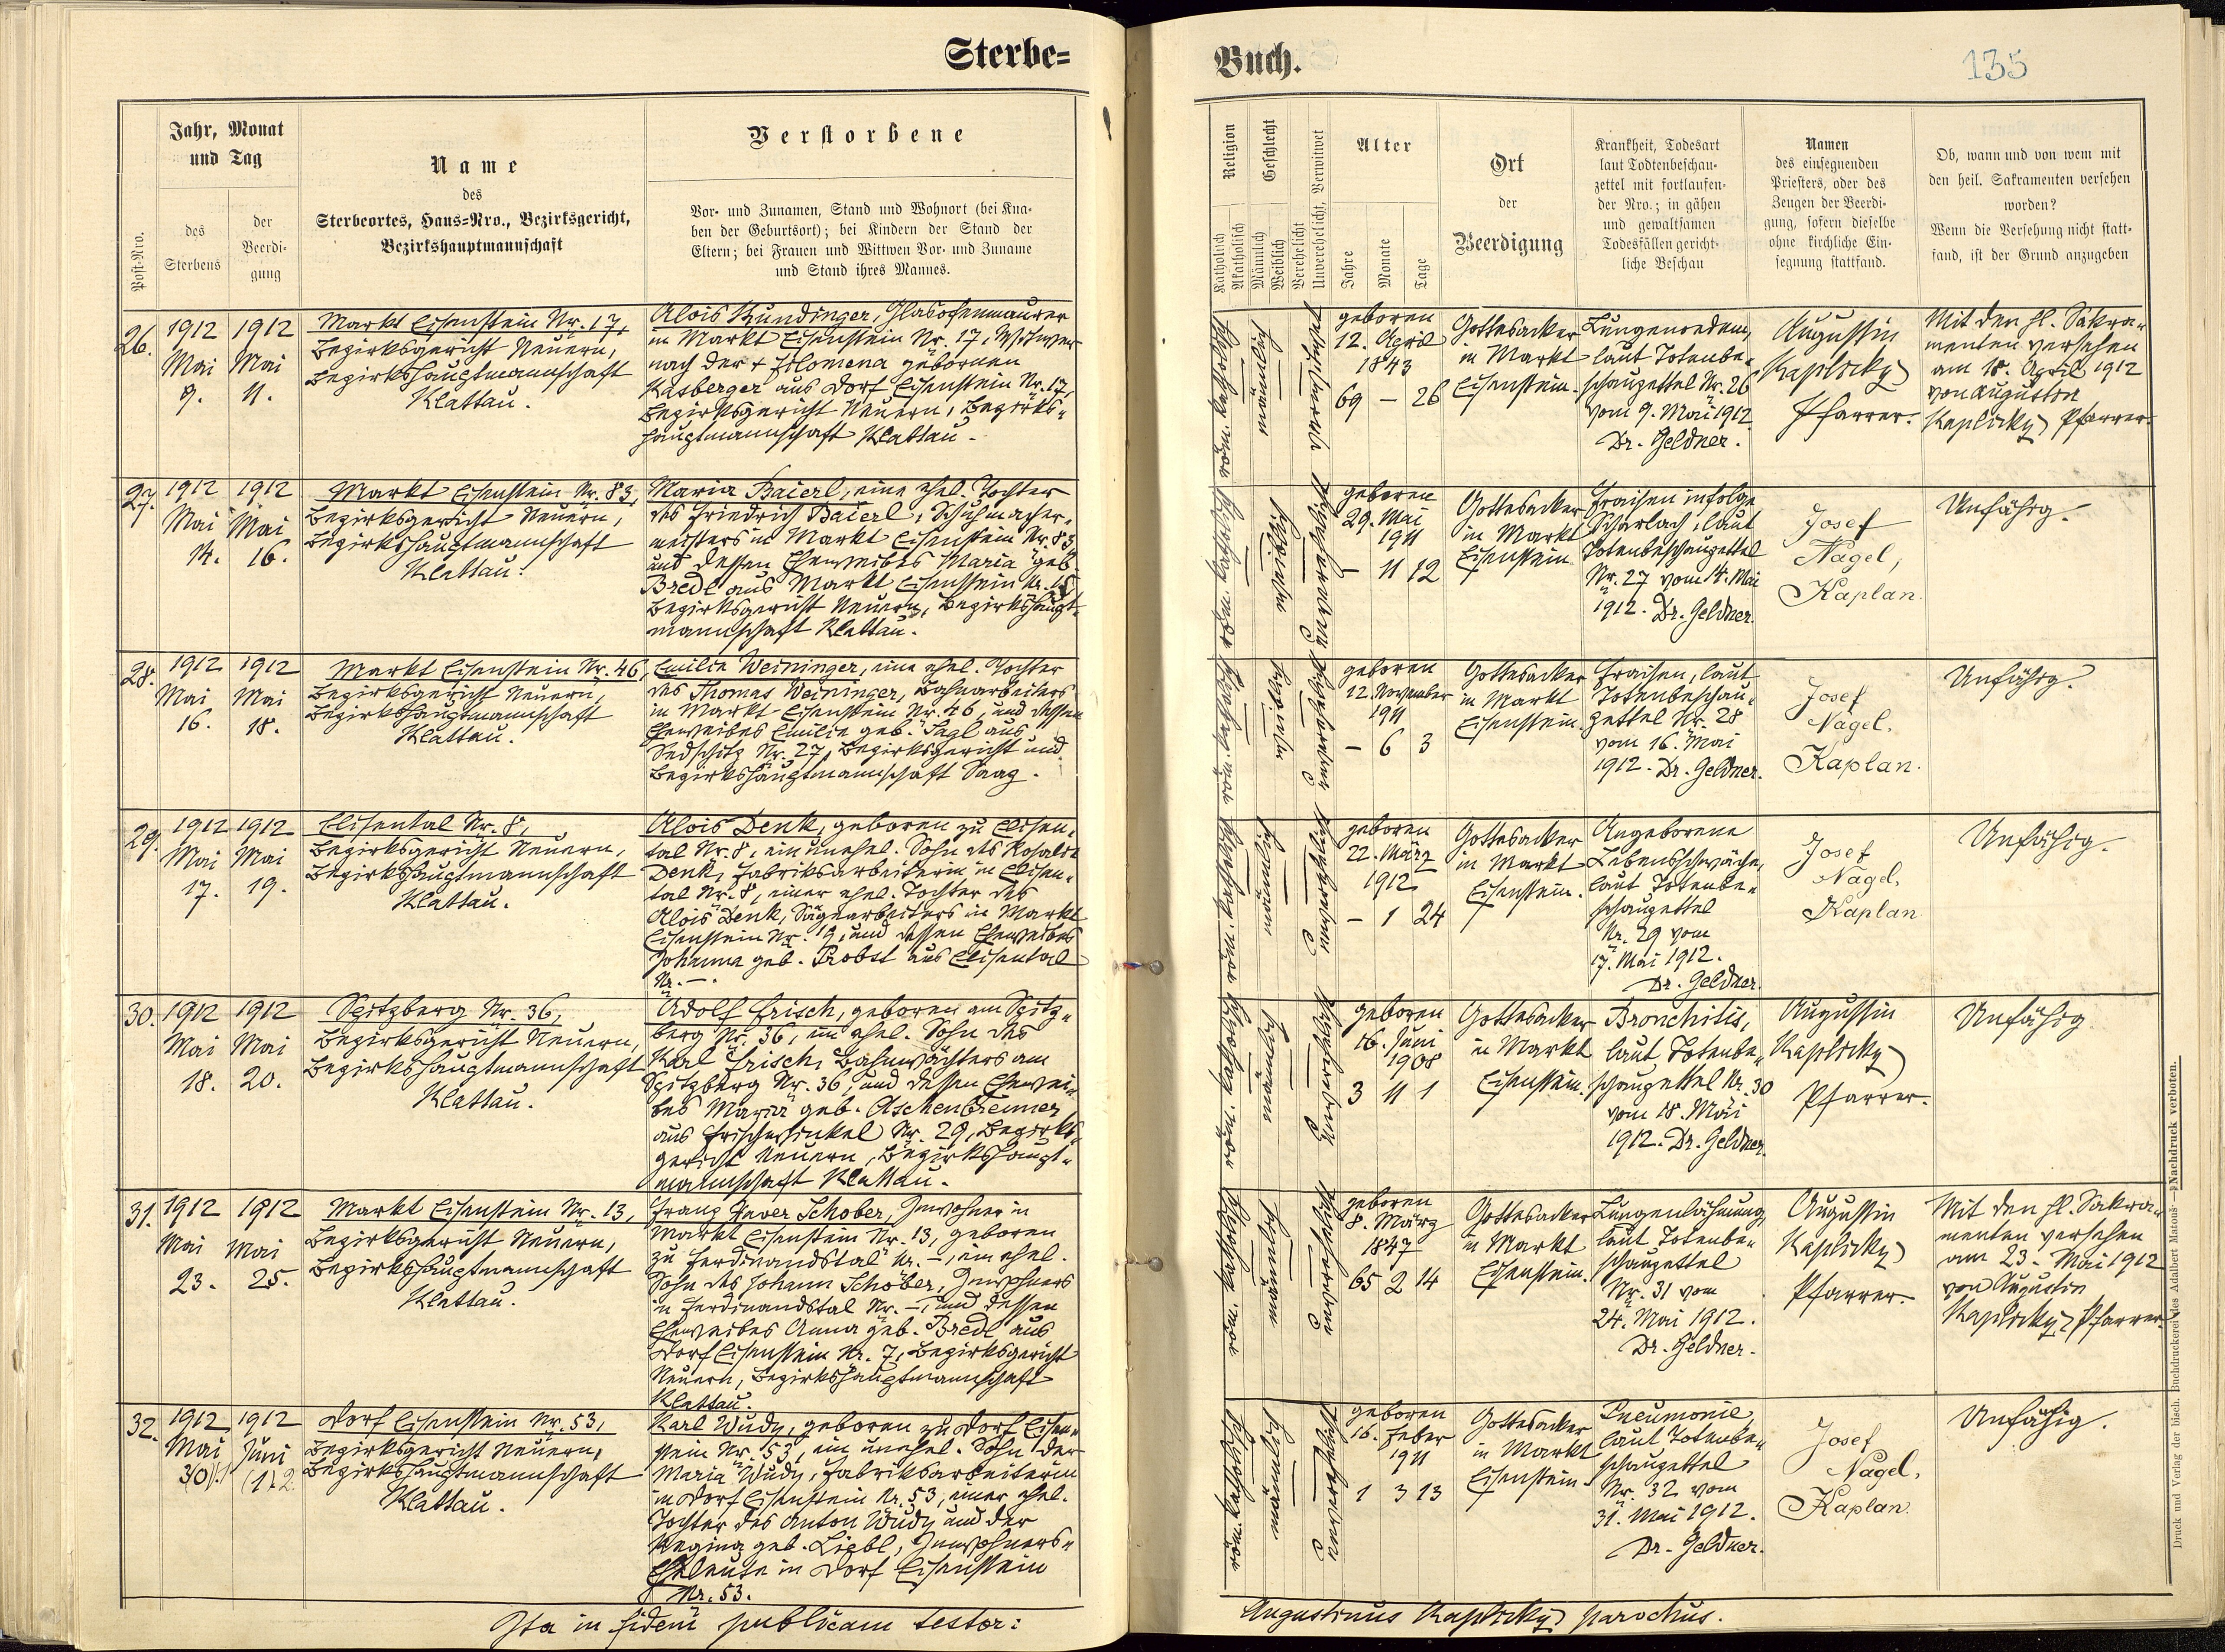 Sterbe=
Jahr, Monat
und Tag
Post-Nro.
des
Sterbens
der
Beerdi-
gung
Name
des
Sterbeortes, Haus=Nro., Bezirksgericht,
Bezirkshauptmannschaft
Verstorbene
Vor- und Zunamen, Stand und Wohnort (bei Kna-
ben der Geburtsort); bei Kindern der Stand der
Eltern; bei Frauen und Wittwen Vor- und Zuname
und Stand ihres Mannes.
26.
1912
Mai
9.
1912
Mai
11.
Markt Eisenstein Nr. 17,
Bezirksgericht Neuern,
Bezirkshauptmannschaft
Klattau.
Alois Kundinger, Glasofenmaurer
in Markt Eisenstein Nr. 17, Witwer
nach der + Filomena gebornen
Kasberger aus Dorf Eisenstein Nr. 17,
Bezirksgericht Neuern, Bezirks-
hauptmannschaft Klattau.
27.
1912
Mai
14.
1912
Mai
16.
Markt Eisenstein Nr. 83,
Bezirksgericht Neuern,
Bezirkshauptmannschaft
Klattau.
Maria Baierl, eine ehel. Tochter
des Friedrich Baierl, Schuhmacher-
meisters in Markt Eisenstein Nr. 83
und dessen Eheweibes Maria geb.
Bredl aus Markt Eisenstein Nr.
Bezirksgericht Neuern, Bezirkshaupt-
mannschaft Klattau.
28.
1912
Mai
16.
1912
Mai
18.
Markt Eisenstein Nr. 46,
Bezirksgericht Neuern,
Bezirkshauptmannschaft
Klattau.
Emilie Weininger, eine ehel. Tochter
des Thomas Weininger, Bahnarbeiters
in Markt-Eisenstein Nr. 46, und dessen
Eheweibes Emilie geb. Sagl aus
Sedschitz Nr. 27, Bezirksgericht und
Bezirkshauptmannschaft Saaz.
29.
1912
Mai
17.
1912
Mai
19.
Elisental Nr. 8,
Bezirksgericht Neuern,
Bezirkshauptmannschaft
Klattau.
Alois Denk, geboren zu Elisen-
tal Nr. 8, ein unehel. Sohn der Rosalie
Denk, Fabriksarbeiterin in Elisen-
tal Nr. 8, einer ehel. Tochter des
Alois Denk, Sägearbeiters in Markt
Eisenstein Nr. 19, und dessen Eheweibes
Johanna geb. Probst aus Elisental
Nr. -.
30.
1912
Mai
18.
1912
Mai
20.
Spitzberg Nr. 36,
Bezirksgericht Neuern,
Bezirkshauptmannschaft
Klattau.
Adolf Frisch, geboren am Spitz-
berg Nr. 36, ein ehel. Sohn des
Karl Frisch, Bahnwächters am
Spitzberg Nr. 36, und dessen Ehewei-
bes Maria geb. Aschenbrenner
aus Frischwinkel Nr. 29, Bezirks-
gericht Neuern, Bezirkshaupt-
mannschaft Klattau.
31.
1912
Mai
23.
1912
Mai
25.
Markt Eisenstein Nr. 13,
Bezirksgericht Neuern,
Bezirkshauptmannschaft
Klattau.
Franz Xaver Schober, Inwohner in
Markt Eisenstein Nr. 13, geboren
zu Ferdinandstal Nr. -, ein ehel.
Sohn des Johann Schober, Inwohners
in Ferdinandstal Nr. -, und dessen
Eheweibes Anna geb. Bredl aus
Dorf Eisenstein Nr. 7, Bezirksgericht
Neuern, Bezirkshauptmannschaft
Klattau.
32.
1912
Mai
1912
Juni
(1) 2.
Dorf Eisenstein Nr. 53,
Bezirksgericht Neuern,
Bezirkshauptmannschaft
Klattau.
Karl Wudy, geboren zu Dorf Eisen-
stein Nr. 53, ein unehel. Sohn der
Maria Wudy, Fabriksarbeiterin
in Dorf Eisenstein Nr. 53, einer ehel.
Tochter des Anton Wudy und der
Regina geb. Liebl, Inwohners-
Eheleute in Dorf Eisenstein
Nr. 53.
Ita in fidem publicam testor:
Buch.
135
Religion
Katholisch
Akatholisch
Geschlecht
Männlich
Weiblich
Verehelicht
Unverehelicht, Verwitwet
Alter
Jahre
Monate
Tage
Ort
der
Beerdigung
Krankheit, Todesart
laut Todtenbeschau-
zettel mit fortlaufen-
der Nro.; in gähen
und gewaltsamen
Todesfällen gericht-
liche Beschau
Namen
des einsegnenden
Priesters, oder des
Zeugen der Beerdi-
gung, sofern dieselbe
ohne kirchliche Ein-
segnung stattfand.
Ob, wann und von wem mit
den heil. Sakramenten versehen
worden?
Wenn die Versehung nicht statt-
fand, ist der Grund anzugeben
röm. katholisch
männlich
verwitwet
geboren
12. April
1843
69 - 26
Gottesacker
in Markt
Eisenstein.
Lungenoedem,
laut Totenbe-
schauzettel Nr. 26
vom 9. Mai 1912
Dr. Geldner.
Augustin
Kaplicky
Pfarrer.
Mit den hl. Sakra-
menten versehen
am 18. April 1912
von Augustin
Kaplicky Pfarrer.
röm. katholisch
weiblich
unverehelicht
geboren
29. Mai
1911
- 11 12
Gottesacker
in Markt
Eisenstein
Fraisen infolge
Scharlach, laut
Totenbeschauzettel
Nr. 27 vom 14. Mai
1912. Dr. Geldner.
Josef
Nagel,
Kaplan.
Unfähig.
röm. katholisch
weiblich
unverehelicht
geboren
12. November
1911
- 6 3
Gottesacker
in Markt
Eisenstein.
Fraisen, laut
Totenbeschau-
zettel Nr. 28
vom 16. Mai
1912. Dr. Geldner.
Josef
Nagel.
Kaplan.
Unfähig.
röm. katholisch
männlich
unverehelicht
geboren
22. März
1912
- 1 24
Gottesacker
in Markt
Eisenstein.
Angeborene
Lebensschwäche,
laut Totenbe-
schauzettel
Nr. 29 vom
17. Mai 1912.
Dr. Geldner.
Josef
Nagel,
Kaplan
Unfähig.
röm. katholisch
männlich
unverehelicht
geboren
16. Juni
1908
3 11 1
Gottesacker
in Markt
Eisenstein.
Bronchitis,
laut Totenbe-
schauzettel Nr. 30
vom 18. Mai
1912. Dr. Geldner.
Augustin
Kaplicky
Pfarrer.
Unfähig
röm. katholisch
männlich
unverehelicht
geboren
8. März
1847
65 2 14
Gottesacker
in Markt
Eisenstein.
Lungenlähmung,
laut Totenbe-
schauzettel
Nr. 31 vom
24. Mai 1912.
Dr. Geldner.
Augustin
Kaplicky
Pfarrer.
Mit den hl. Sakra-
menten versehen
am 23. Mai 1912
von Augustin
Kaplicky, Pfarrer.
röm. katholisch
männlich
unverehelicht
geboren
16. Feber
1911
1 3 13
Gottesacker
in Markt
Eisenstein.
Pneumonie,
laut Totenbe-
schauzettel
Nr. 32 vom
31. Mai 1912.
Dr. Geldner.
Josef
Nagel,
Kaplan.
Unfähig.
Augustinus Kaplicky parochus.
Druck und Verlag der bisch. Buchdruckerei des Adalbert Matouš. — Nachdruck verboten.